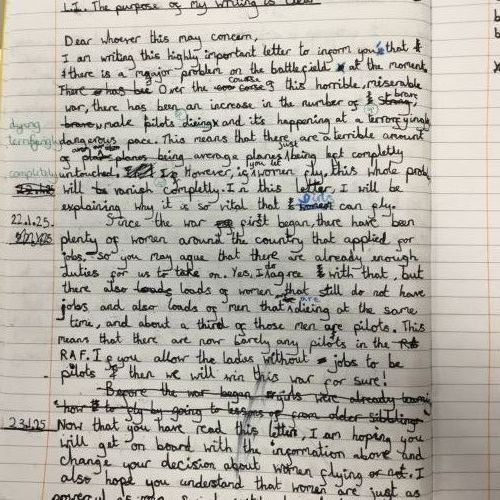 L.I. The purpose of my writing is clear
Dear whoever this may concern,
I am writing this highly important letter to inform you that
there is a major problem on the battlefield at the moment.
There has bee Over the course of this horrible, miserable
war, there has been an increase in the number of strong, brave
brave male pilots dieing and it's happening at a terrorfyingly
dying
terrifyingly
dangerous pace. This means that there are a terrible amount
of planes being average planes just being kept completly
untouched. However, if you let women fly, this whole prob
completely
will be vanish completly. In this letter, I will be
explaining why it is so vital that women can fly.
22.1.25.
Since the war first began, there have been
plenty of women around the country that applied for
jobs, so you may ague that there are already enough
duties for us to take on. Yes, I to agree with that, but
there also loads loads of women that still do not have
jobs and also loads of men that are dieing at the same
time, and about a third of those men are pilots. This
means that there are now barely any pilots in the
RAF. If you allow the ladies without jobs to be
pilots then we will win this war for sure!
Before the war began girls were already learning
how to fly by going to lessons from older siblings
23.1.25
Now that you have read this letter, I am hoping you
will get on board with the information above and
change your decision about women flying or not. I
also hope you understand that women are just as
powerful as men